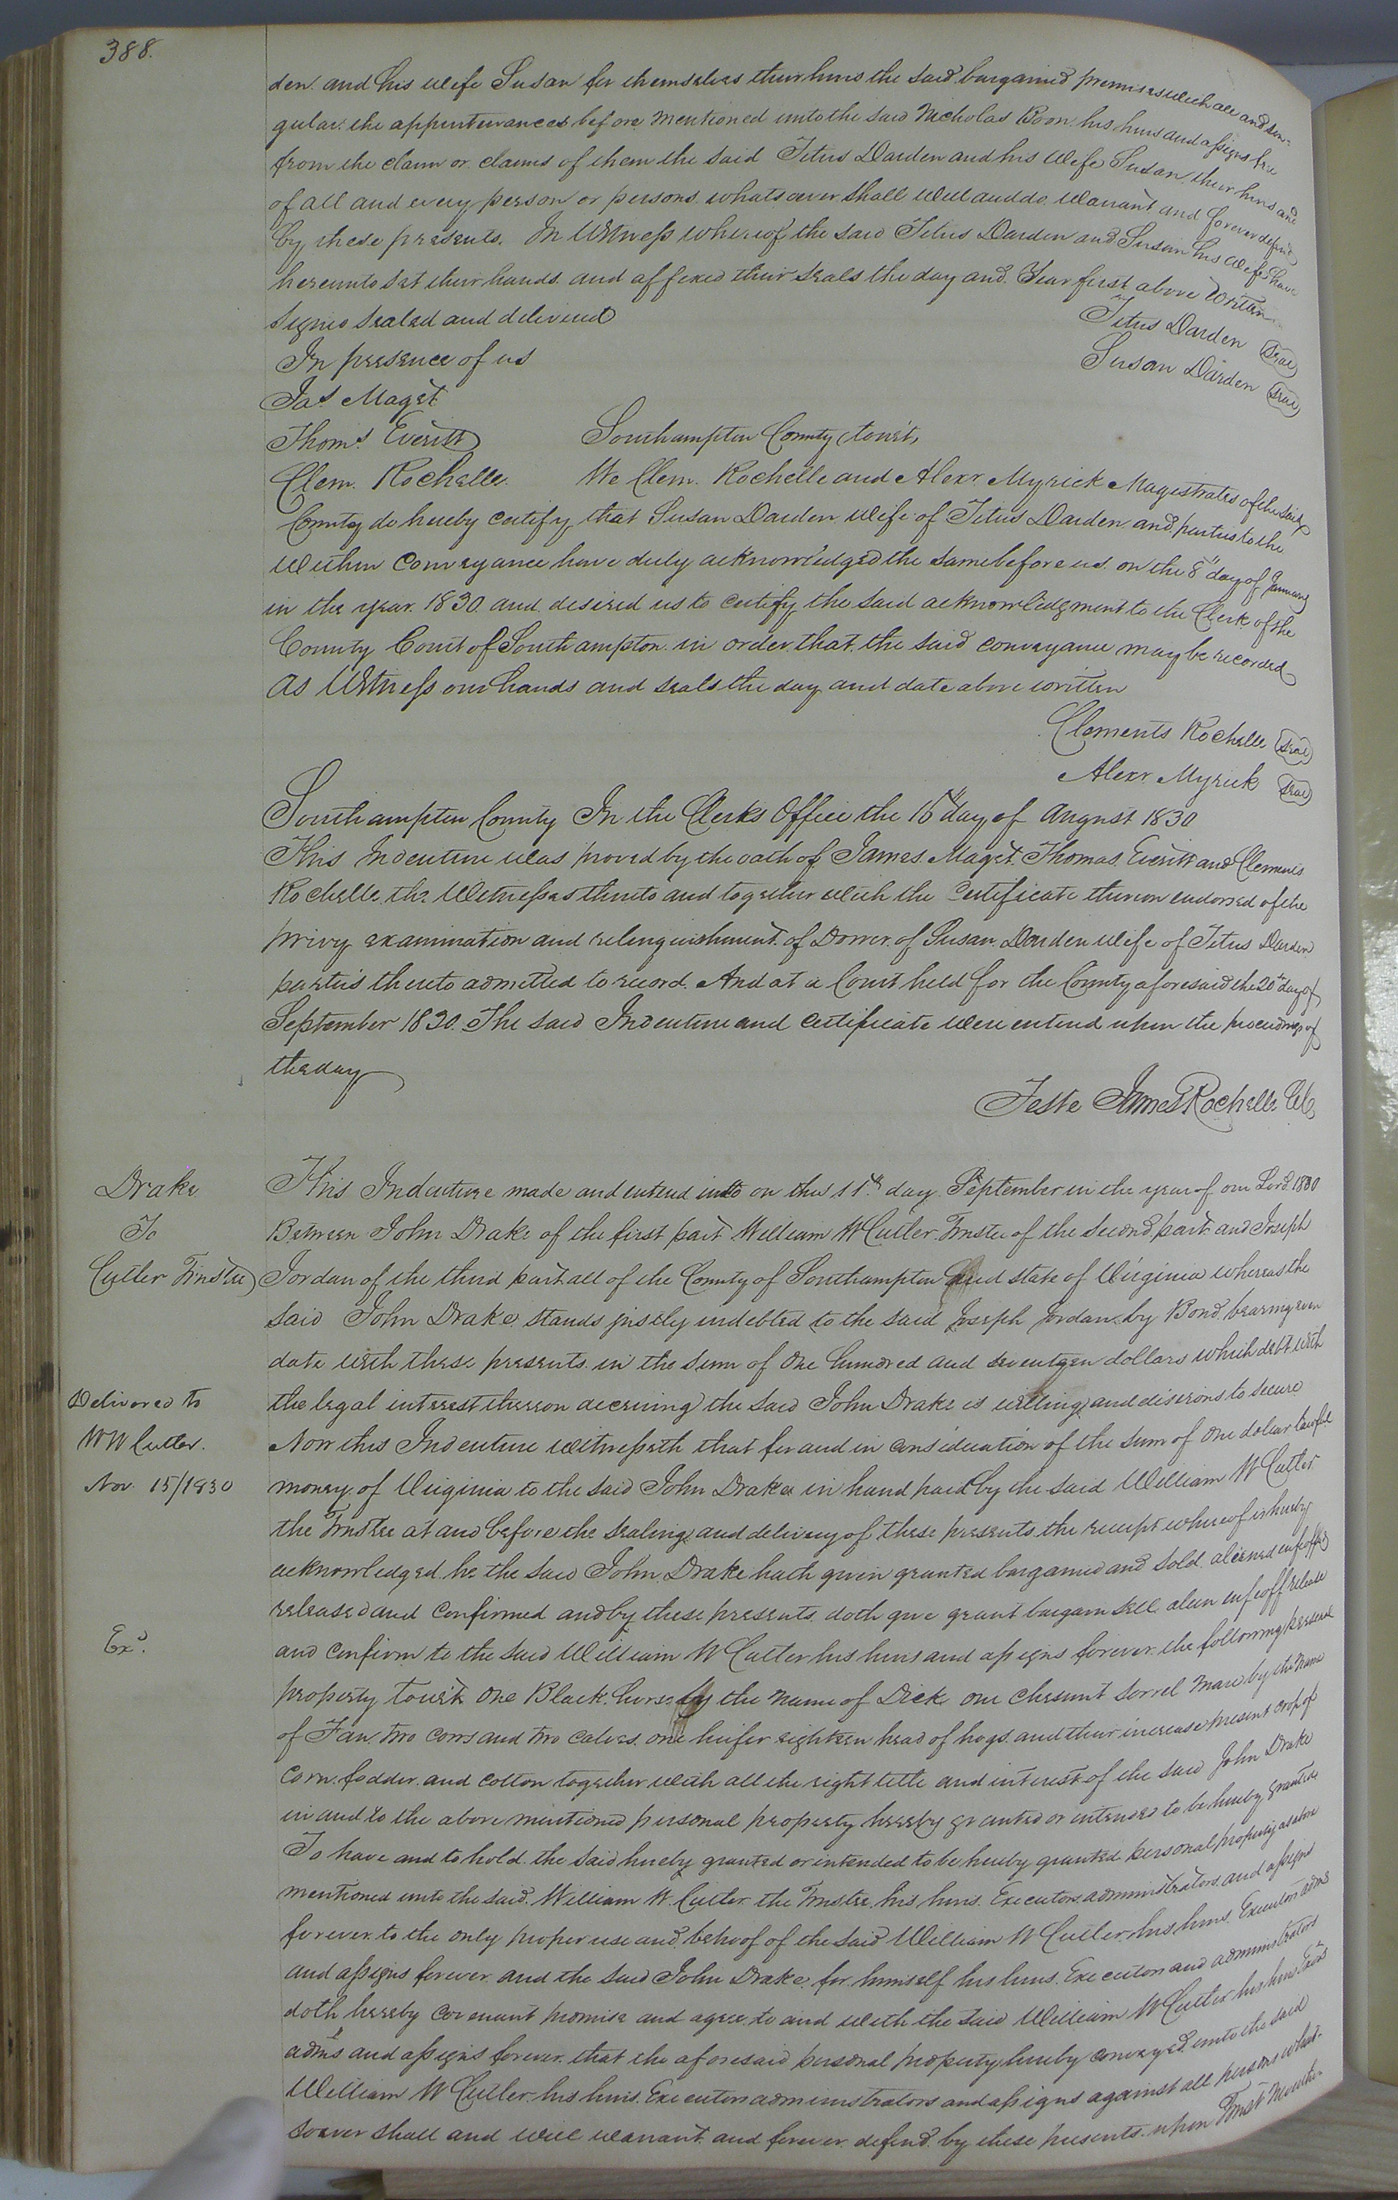 388.
den and his wife Susan for themselves their heirs the said bargained premises with all and sin-
gular the appurtenances before mentioned unto the said Nicholas Boon his heirs and assigns free
from the claim or claims of them the said Titus Darden and his wife Susan their heirs and
of all and every person or persons whatsoever shall will and do warrant and forever defend
by these presents. In Witness whereof the said Titus Darden and Susan his wife have
hereunto set their hands and affixed their seals the day and Year first above written
Signed Sealed and delivered
Titus Darden Seal
In presence of us
Susan Darden Seal
Jas Maget
Thoms Everitt
Southampton County towit,
Clem. Rochelle
We Clem. Rochelle and Alexr Myrick Magistrates of the said
County do hereby certify that Susan Darden wife of Titus Darden and parties to the
within Conveyance have duly acknowledged the same before us on the 8th day of January
in the year 1830 and desired us to certify the said acknowledgment to the Clerk of the
County Court of Southampton in order that the said conveyance may be recorded
As Witness our hands and seals the day and date above written
Clements Rochelle Seal
Alexr Myrick Seal
Southampton County In the Clerks Office the 16th day of August 1830
This Indenture was proved by the oath of James Maget, Thomas Everitt and Clements
Rochelle the Witnesses thereto and together with the Certificate thereon endorsed of the
privy examination and relinquishment of Dower of Susan Darden wife of Titus Darden
parties thereto admitted to record. And at a Court held for the County aforesaid the 20th day of
September 1830. The said Indenture and certificate were entered upon the proceedings of
the day
Teste James Rochelle
Drake
To
Cutler Trustee
Delivered to
W W Cutler.
Nov. 15/1830
Exd.
This Indenture made and entered into on this 11th day September in the year of our Lord 1830
Between John Drake of the first part William W Cutler Trustee of the Second part and Joseph
Jordan of the third part all of the County of Southampton and state of Virginia whereas the
said John Drake stands justly indebted to the said Joseph Jordan by Bond bearing even
date with these presents in the sum of one hundred and seventeen dollars which debt with
the legal interest thereon accruing the said John Drake is willing and disirous to secure
Now this Indenture witnesseth that for and in consideration of the sum of one dollar lawful
money of Virginia to the said John Drake in hand paid by the said William W Cutler
the Trustee at and before the sealing and delivery of these presents the receipt whereof is hereby
acknowledged he the said John Drake hath given granted bargained and sold aliened enfeoffed
released and confirmed and by these presents doth give grant bargain sell alien enfeoff release
and confirm to the said William W Cutler his heirs and assigns forever the following personal
property towit One Black horse by the name of Dick one chesnut sorrel mare by the name
of Fan two cows and two calves one heifer eighteen head of hogs and their increase present crop of
corn fodder and cotton together with all the right title and interest of the said John Drake
in and to the above mentioned personal property hereby granted or intended to be hereby granted
To have and to hold the said hereby granted or intended to be hereby granted personal property as above
mentioned unto the said William W. Cutler the Trustee his heirs Executors administrators and assigns
forever to the only proper use and behoof of the said William W Cutler his heirs Executors adms
and assigns forever and the said John Drake for himself his heirs Executors and administrators
doth hereby covenant promise and agree to and with the said William W Cutler his heirs Exors
adms and assigns forever that the aforesaid personal property hereby conveyed unto the said
William W Cutler his heirs Executors administrators and assigns against all persons what-
soever shall and will warrant and forever defend by these presents upon Trust